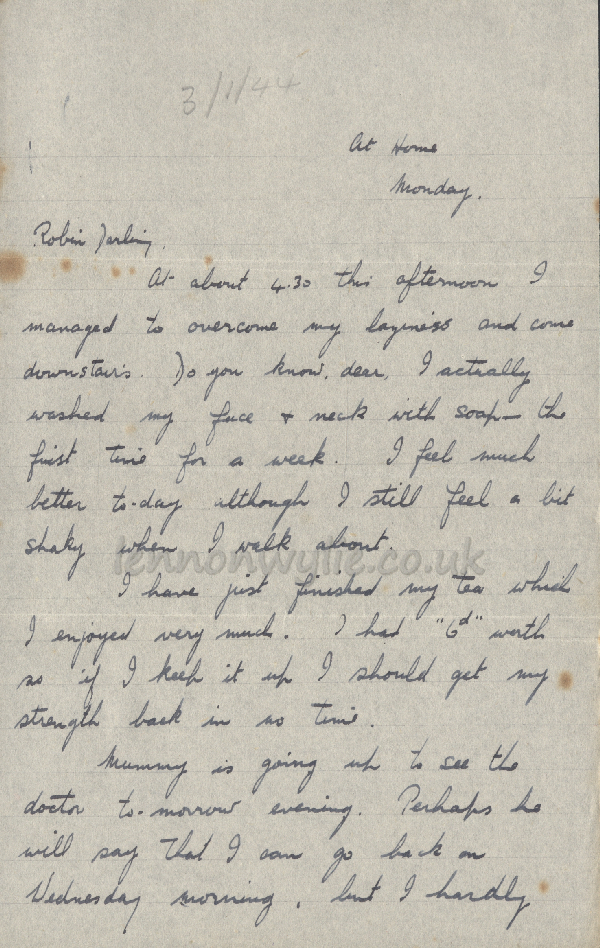 3/1/44
At Home
Monday.
Robin Darling,
At about 4.30 this afternoon I
managed to overcome my laziness and come
downstairs. Do you know, dear, I actually
washed my face + neck with soap – the
first time for a week. I feel much
better to-day although I still feel a bit
shaky when I walk about.
lennonwylie.co.uk
I have just finished my tea which
I enjoyed very much. I had "6d" worth
so if I keep it up I should get my
strength back in no time.
Mummy is going up to see the
doctor to-morrow evening. Perhaps he
will say that I can go back on
Wednesday morning, but I hardly